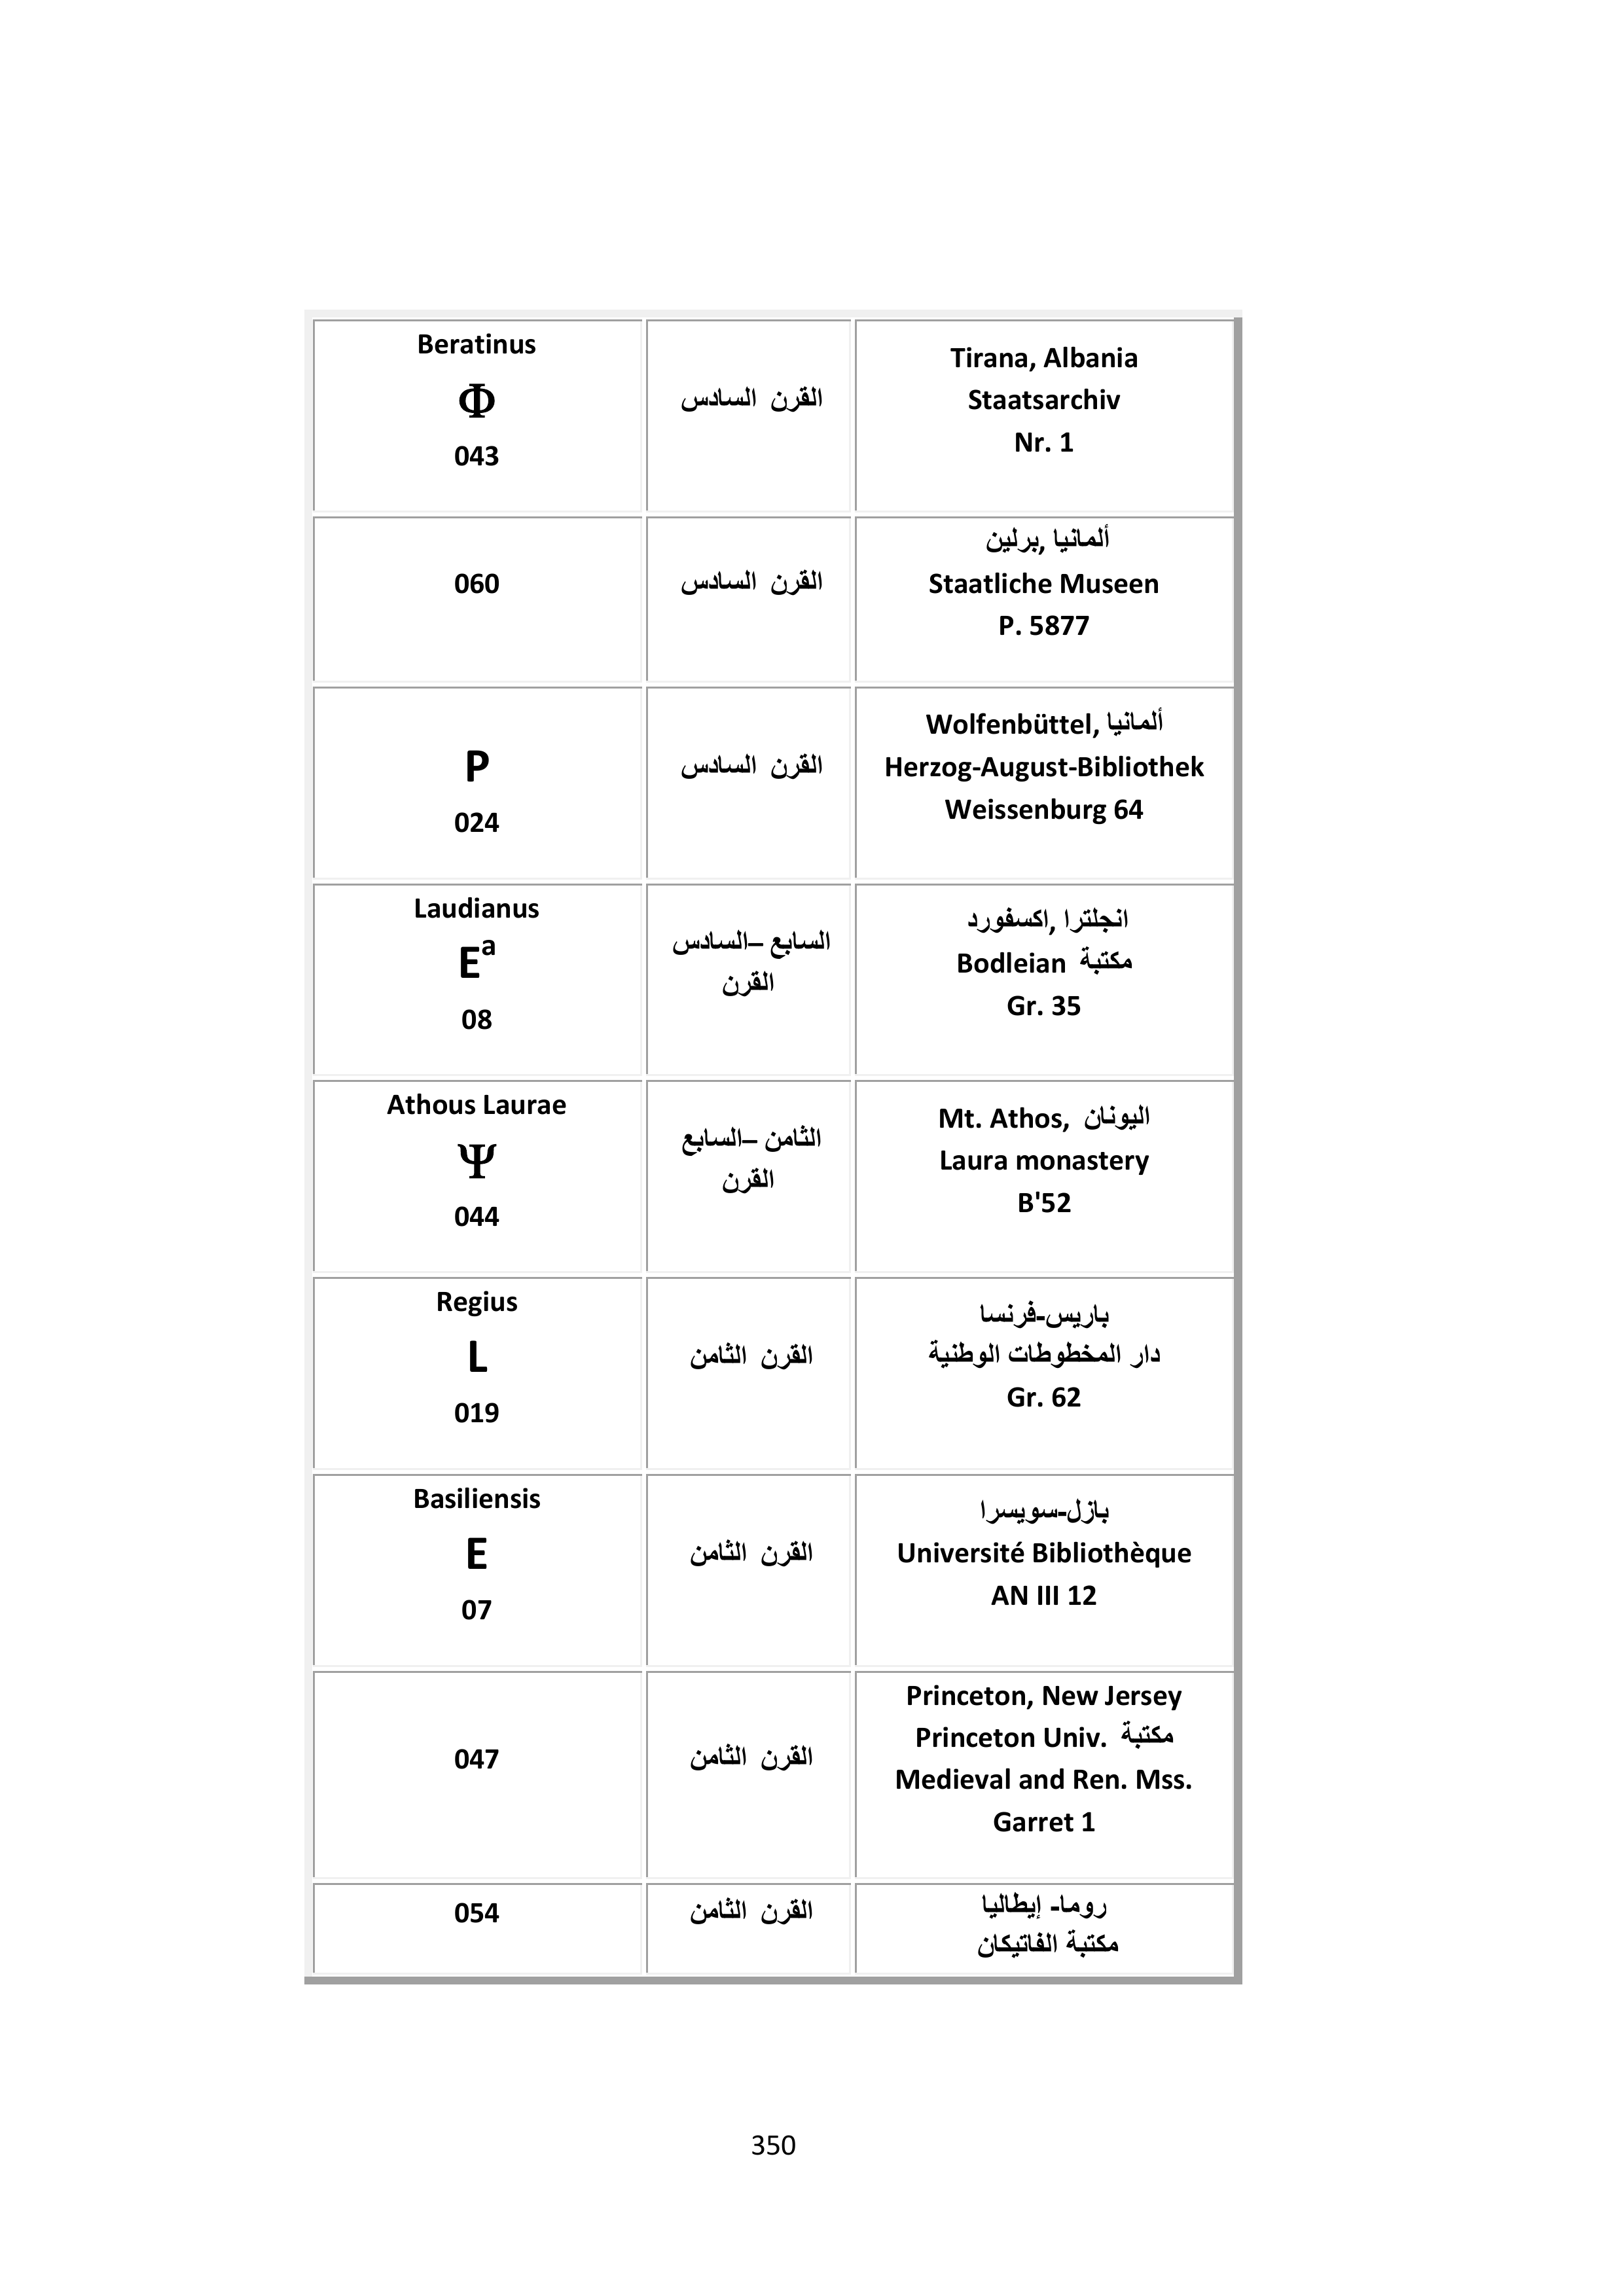 Beratinus
Φ
043
القرن السادس
Tirana, Albania
Staatsarchiv
Nr. 1
060
القرن السادس
ألمانيا ,برلين
Staatliche Museen
P. 5877
P
024
القرن السادس
Wolfenbüttel, ألمانيا
Herzog-August-Bibliothek
Weissenburg 64
Laudianus
Eª
08
السابع –السادس
القرن
انجلترا ,اكسفورد
Bodleian مكتبة
Gr. 35
Athous Laurae
Ψ
044
الثامن –السابع
القرن
Mt. Athos, اليونان
Laura monastery
B'52
Regius
L
019
القرن الثامن
باريس-فرنسا
دار المخطوطات الوطنية
Gr. 62
Basiliensis
E
07
القرن الثامن
بازل-سويسرا
Université Bibliothèque
AN III 12
047
القرن الثامن
Princeton, New Jersey
Princeton Univ. مكتبة
Medieval and Ren. Mss.
Garret 1
054
القرن الثامن
روما- إيطاليا
مكتبة الفاتيكان
350